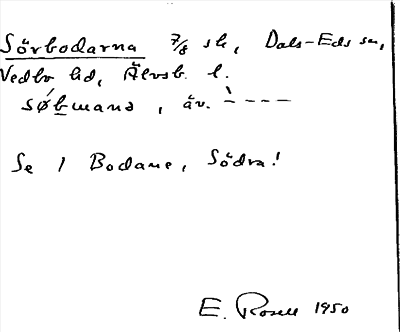 Sörbodarna 7/8 sk, Dals-Eds sn,
Vedbo hd, Älvsb. l.
søbmana, äv. - - - -
Se 1 Bodane, Södra!
E. Rosell 1950